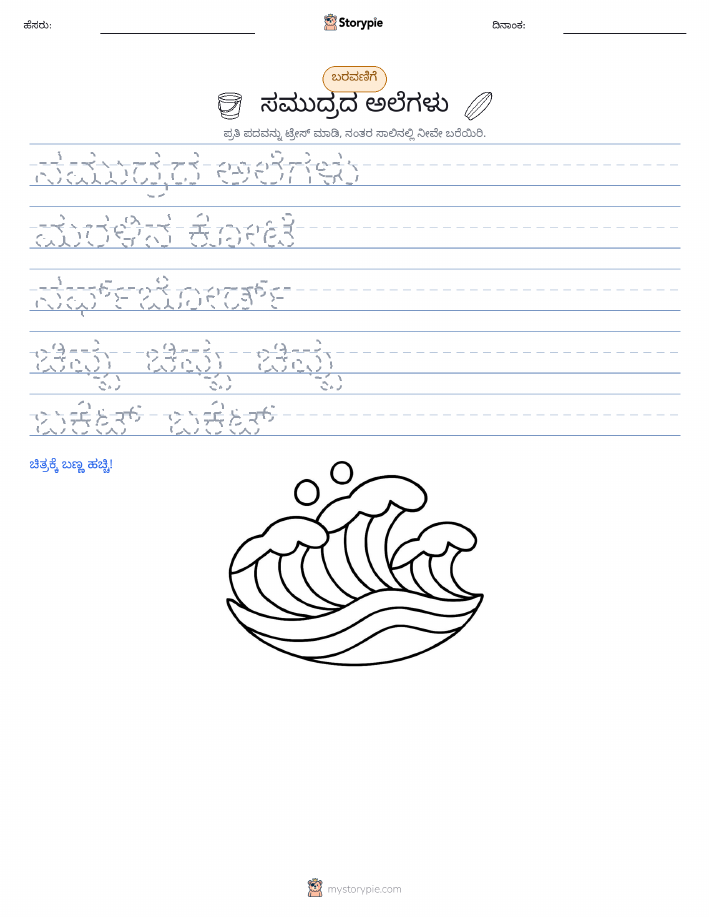 ಹೆಸರು:
Storypie
ದಿನಾಂಕ:
ಬರವಣಿಗೆ
ಸಮುದ್ರದ ಅಲೆಗಳು
ಪ್ರತಿ ಪದವನ್ನು ಟ್ರೇಸ್ ಮಾಡಿ, ನಂತರ ಸಾಲಿನಲ್ಲಿ ನೀವೇ ಬರೆಯಿರಿ.
ಸಮುದ್ರದ ಅಲೆಗಳು
ಮರಳಿನ ಕೋಟೆ
ಸರ್ಫ್‌ಬೋರ್ಡ್
ಚಿಪ್ಪು ಚಿಪ್ಪು ಚಿಪ್ಪು
ಬಕೆಟ್ ಬಕೆಟ್
ಚಿತ್ರಕ್ಕೆ ಬಣ್ಣ ಹಚ್ಚಿ!
mystorypie.com